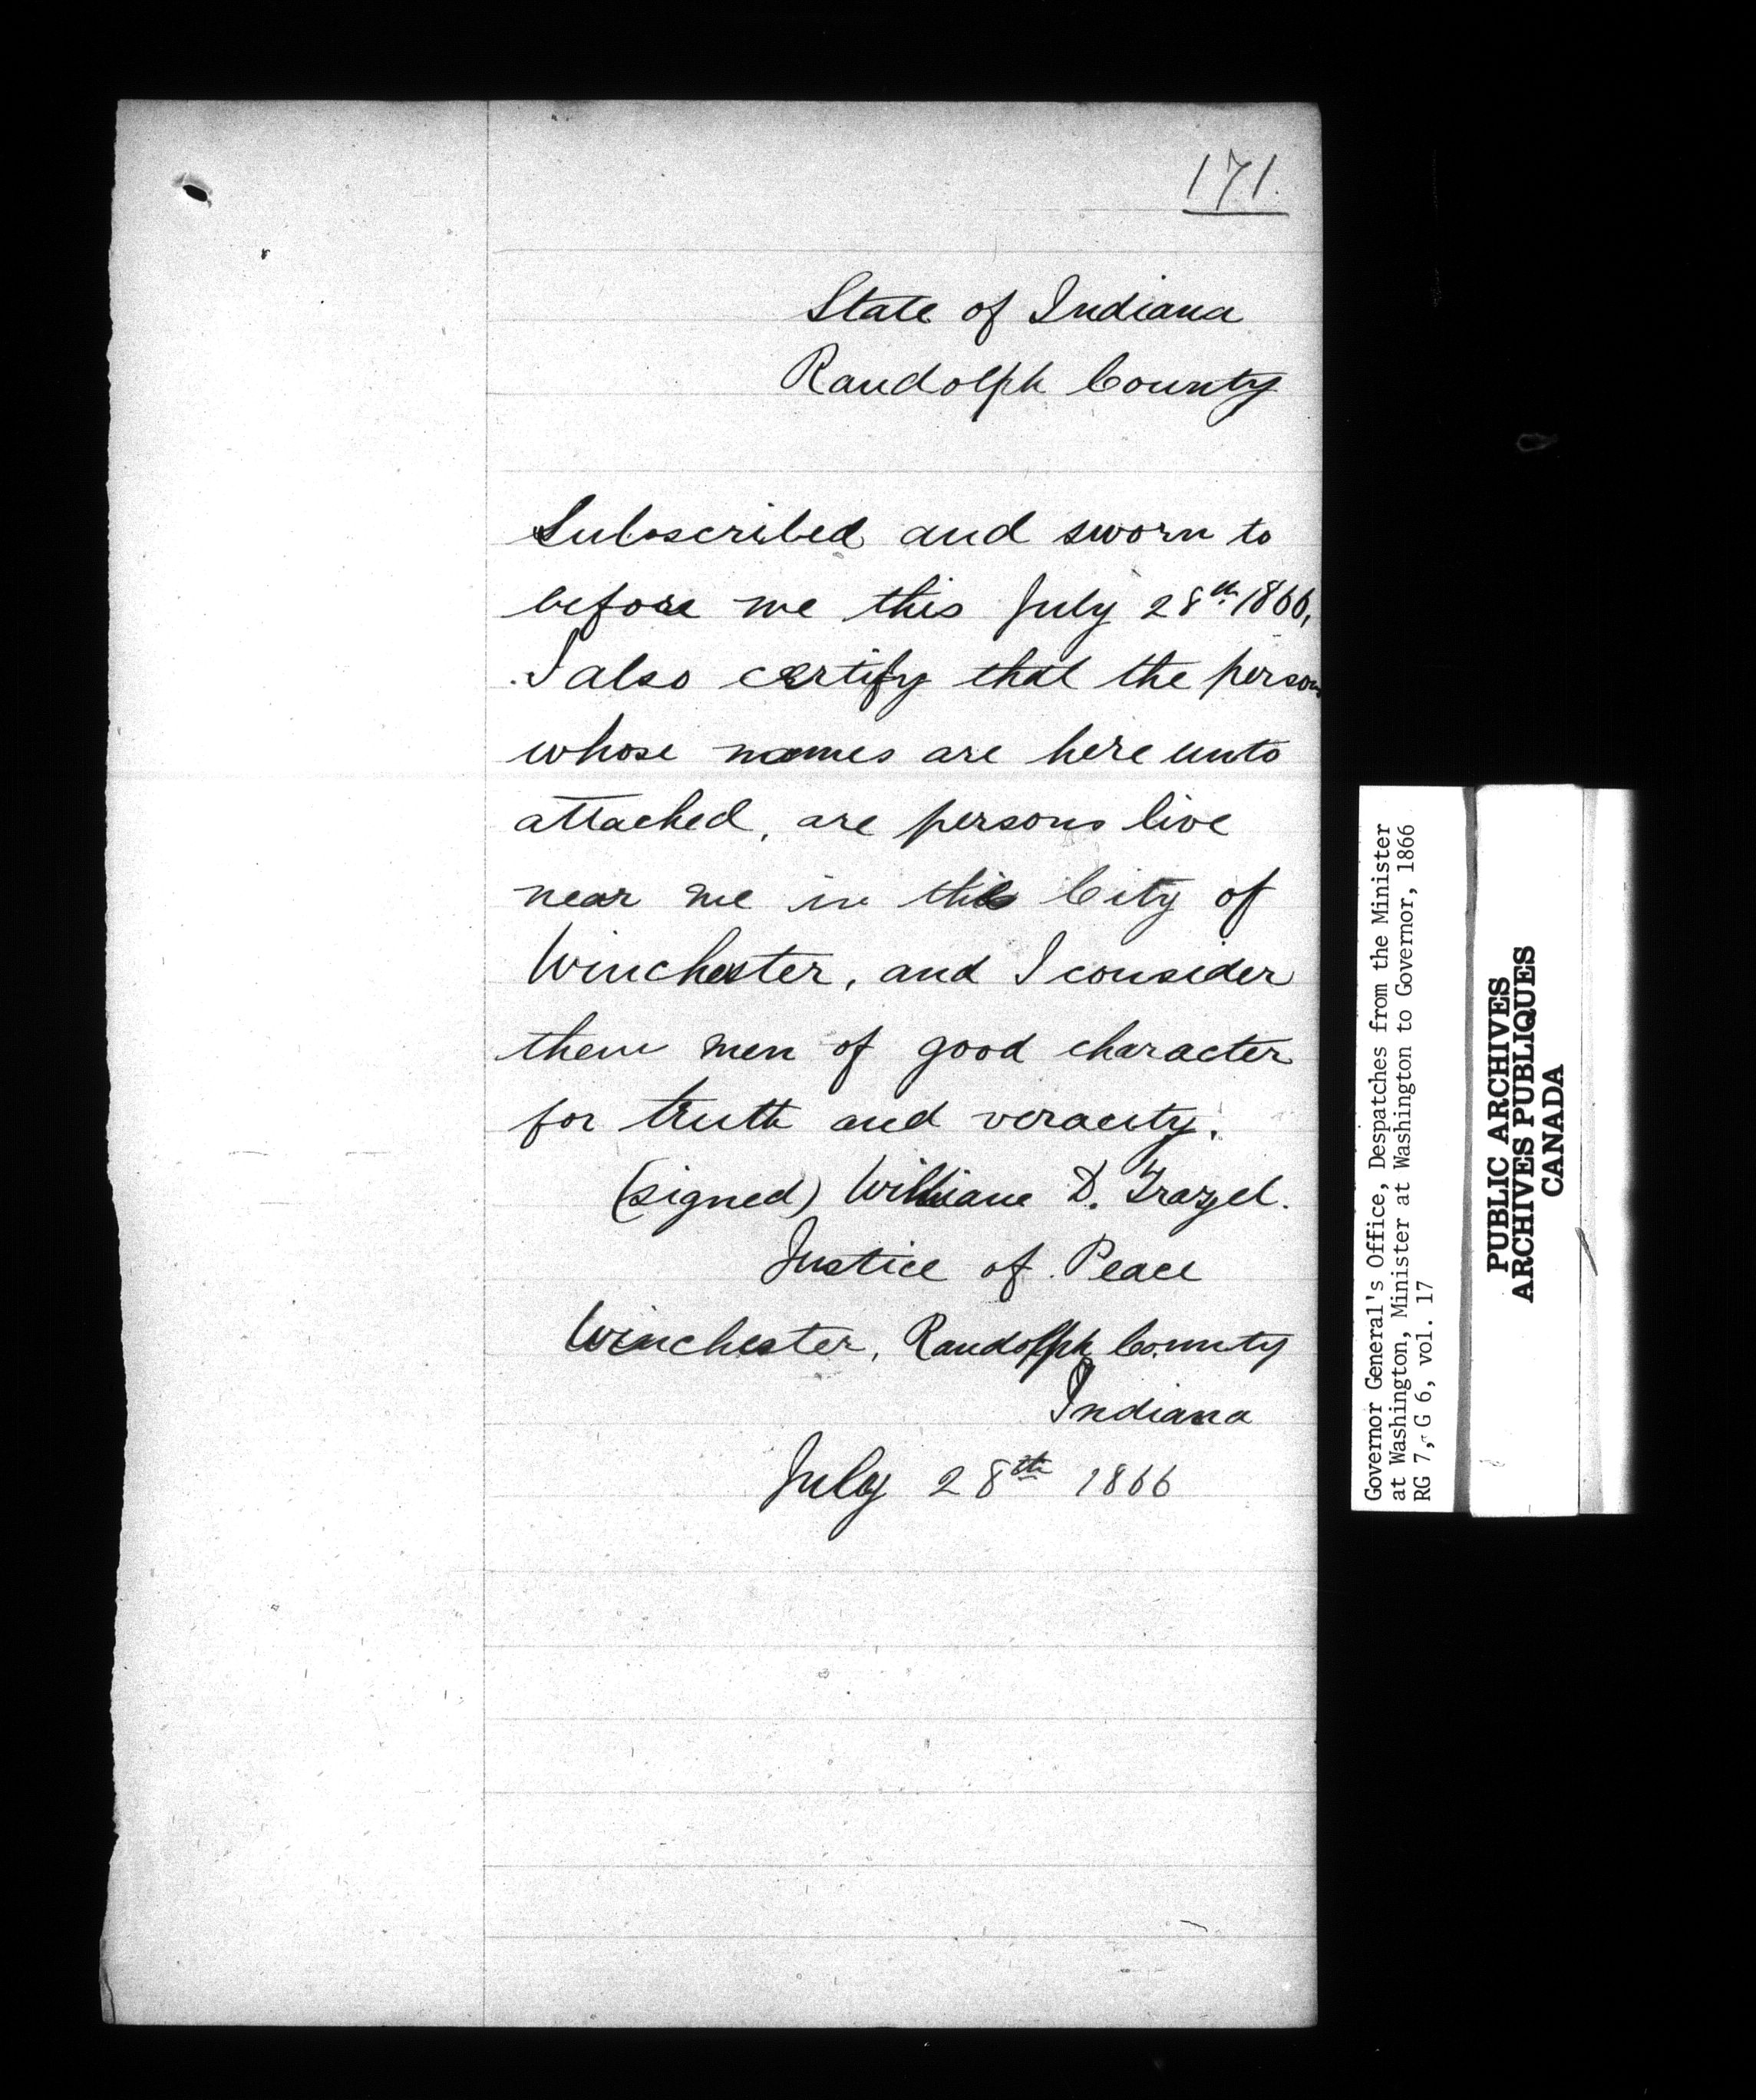 171.
State of Indiana
Randolph County
Subscribed and sworn to
before me this July 28th 1866,
I also certify that the persons
whose names are here unto
attached, are persons live
near me in this City of
Winchester, and I consider
them men of good character
for truth and veracity.
(signed) William D. Frazel.
Justice of Peace
Winchester, Randolph County
Indiana
July 28th 1866
Governor General's Office, Despatches from the Minister
at Washington, Minister at Washington to Governor, 1866
RG 7, G 6, vol. 17
PUBLIC ARCHIVES
ARCHIVES PUBLIQUES
CANADA